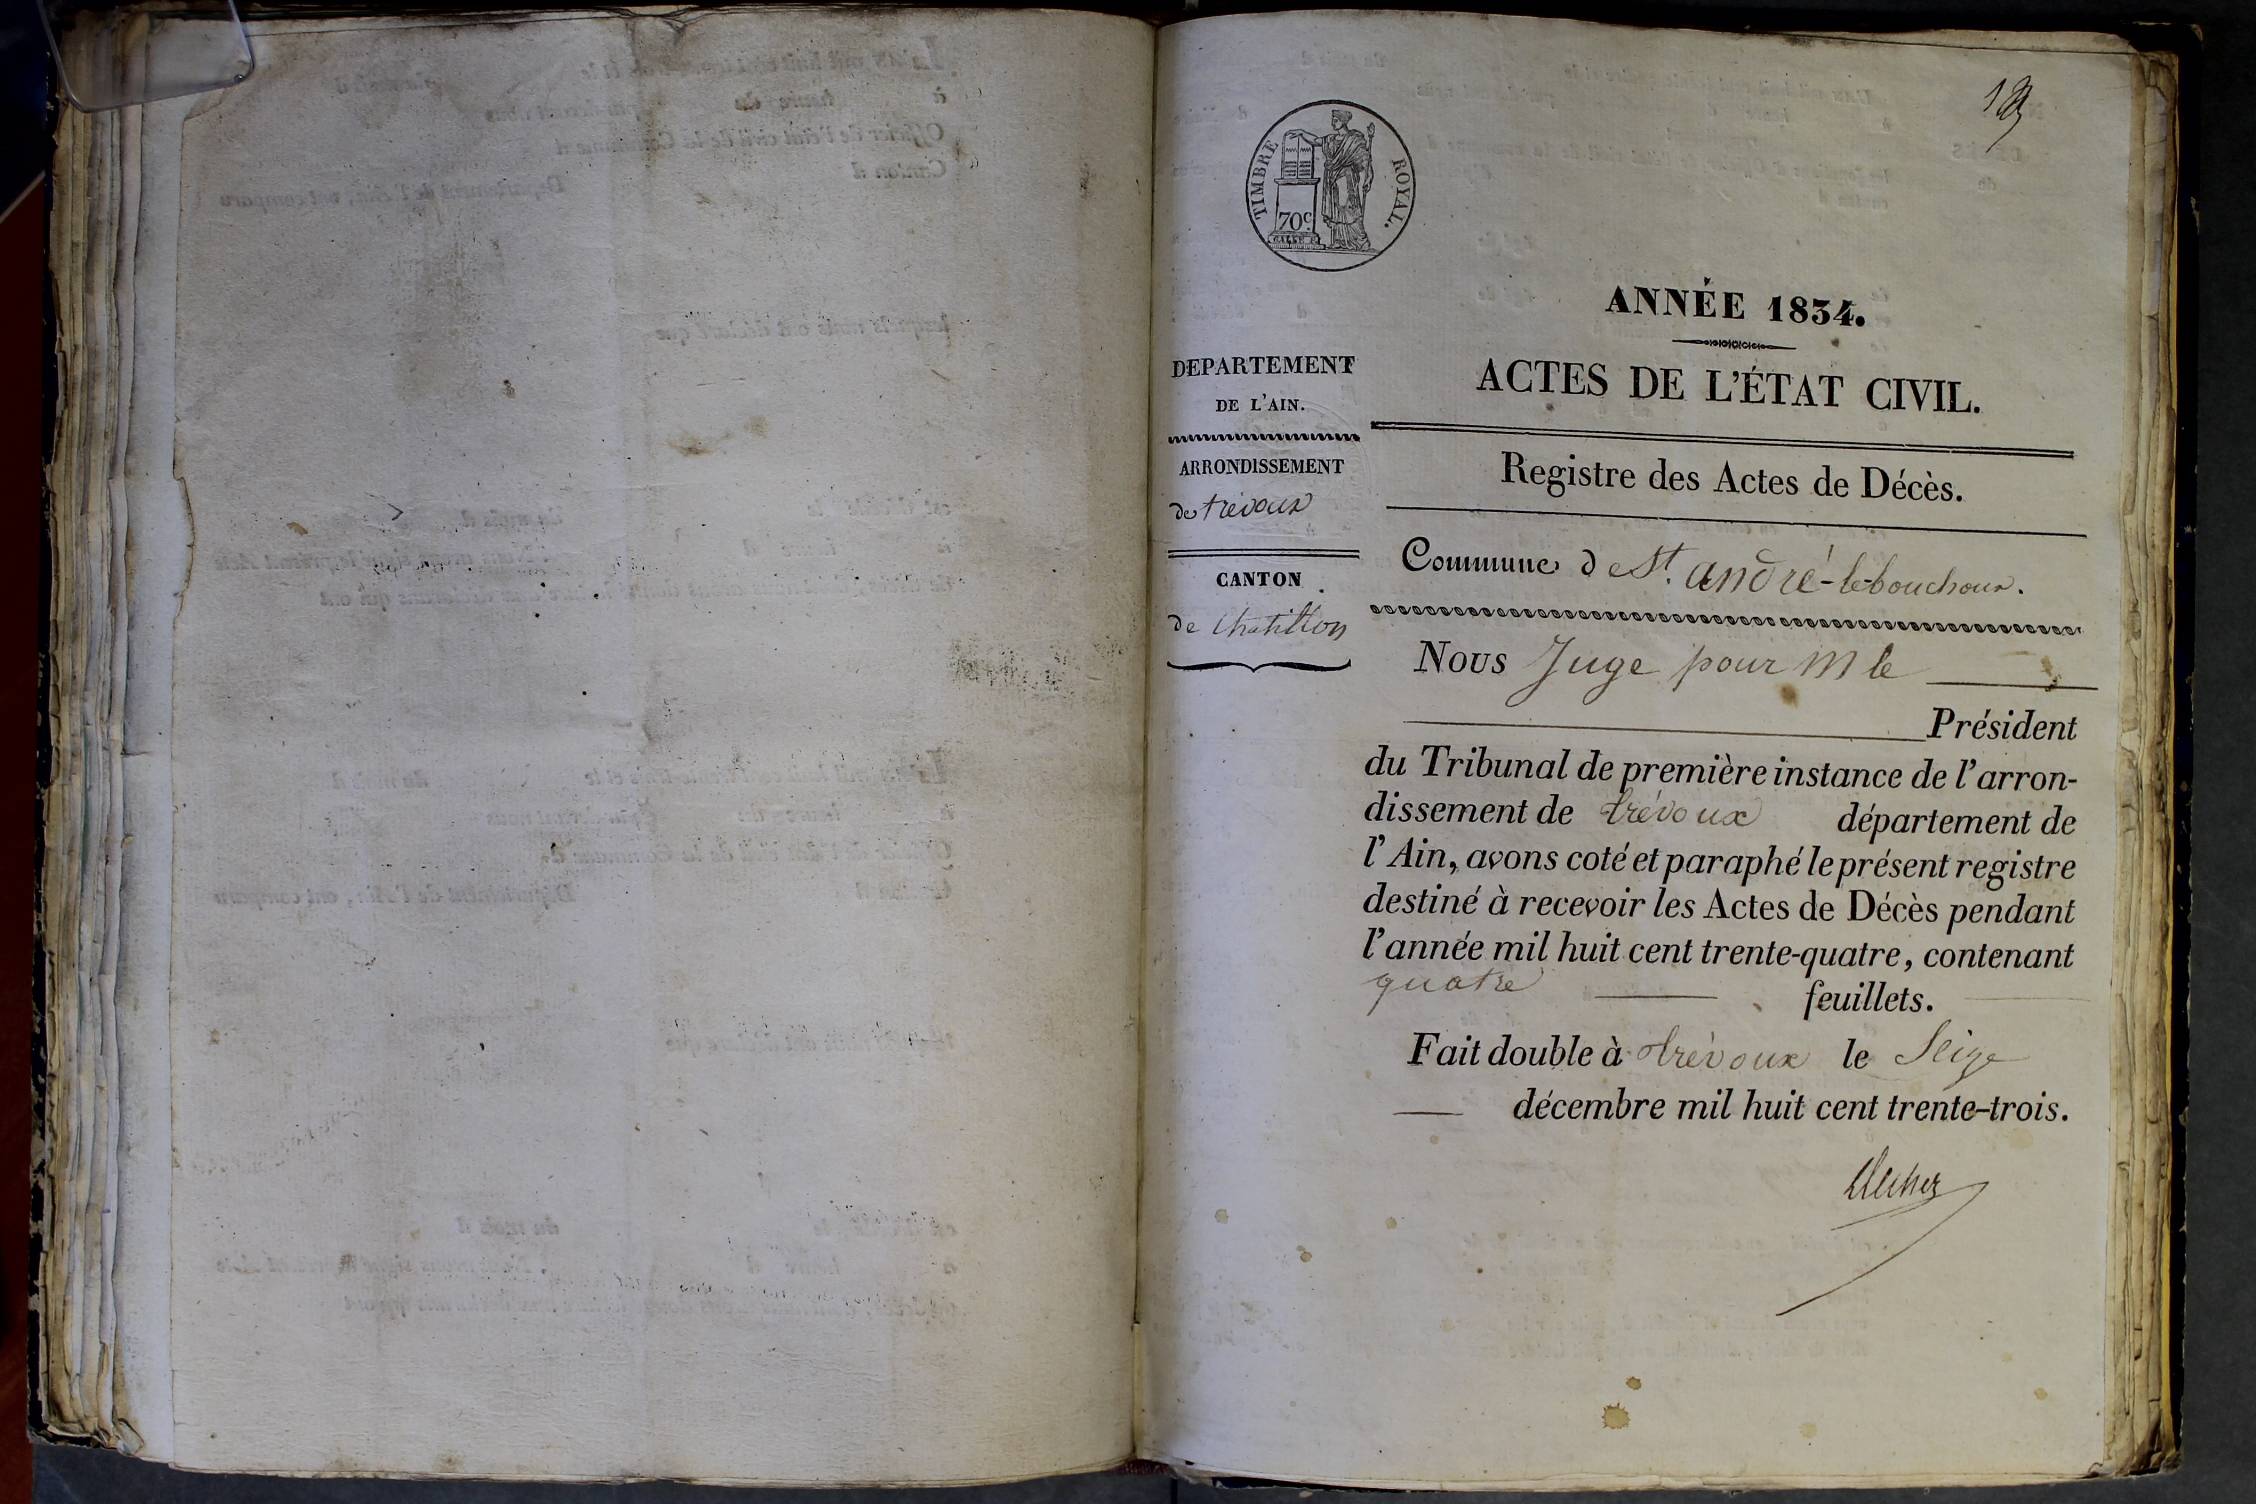 TIMBRE ROYAL.
70c
ANNÉE 1834.
ACTES DE L'ÉTAT CIVIL.
Registre des Actes de Décès.
DEPARTEMENT
DE L'AIN.
ARRONDISSEMENT
de trévoux
CANTON
de Chatillon
Commune de St. andré-le-bouchoux.
Nous Juge pour M le
Président
du Tribunal de première instance de l'arron-
dissement de trévoux département de
l'Ain, avons coté et paraphé le présent registre
destiné à recevoir les Actes de Décès pendant
l'année mil huit cent trente-quatre, contenant
quatre feuillets.
Fait double à trévoux le Seize
décembre mil huit cent trente-trois.